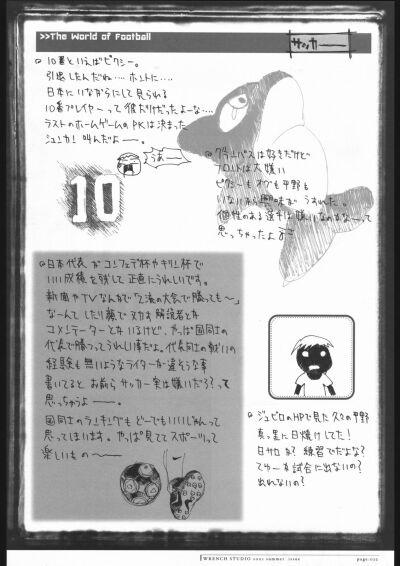 >>The World of Football
サッカー
10番といえばピクシー。
引退したんだね…。ホントに…。
日本にいながらにして見られる
10番プレイヤーって彼だけだったよーな…。
ラストのホームゲームのPKは決まった
うぉーー
10
グランパスは好きだけど
フロントは大嫌い
ピクシーも オグも 平野も
個性のある選手は嫌いなのかな〜って
思っちゃったよ
日本代表がコンフェデ杯やキリン杯で
いい成績を残して正直にうれしいです。
新聞やTVなんかで「2流の大会で勝っても〜」
なーんてしたり顔でヌカす解説者とか
コメンテーターとかいるけど、やっぱ国同士の
代表で勝つってうれしい事だよ。代表同士の戦いの
経験も無いようなライターが偉そうな事
書いてると お前ら サッカー実は嫌いだろ?って
思っちゃうよー。
国同士のランキングも どーでもいいじゃんって
思ってしまいます。やっぱ見ててスポーツって
楽しいもの〜
ジュビロのHPで見た久々の平野
真っ黒に日焼けしてた!
日サロか? 練習でだよな?
てゆーか試合に出ないの?
出れないの?
WRENCH STUDIO 2001 summer issue